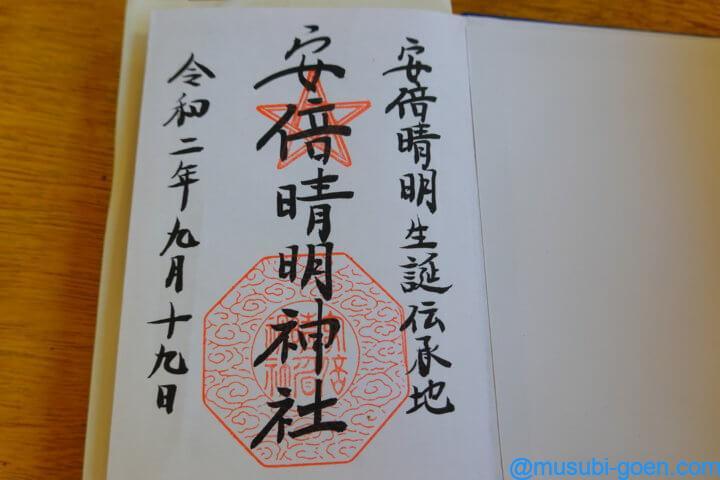 安倍晴明生誕伝承地
安倍晴明神社
令和二年九月十九日
@musubi-goen.com